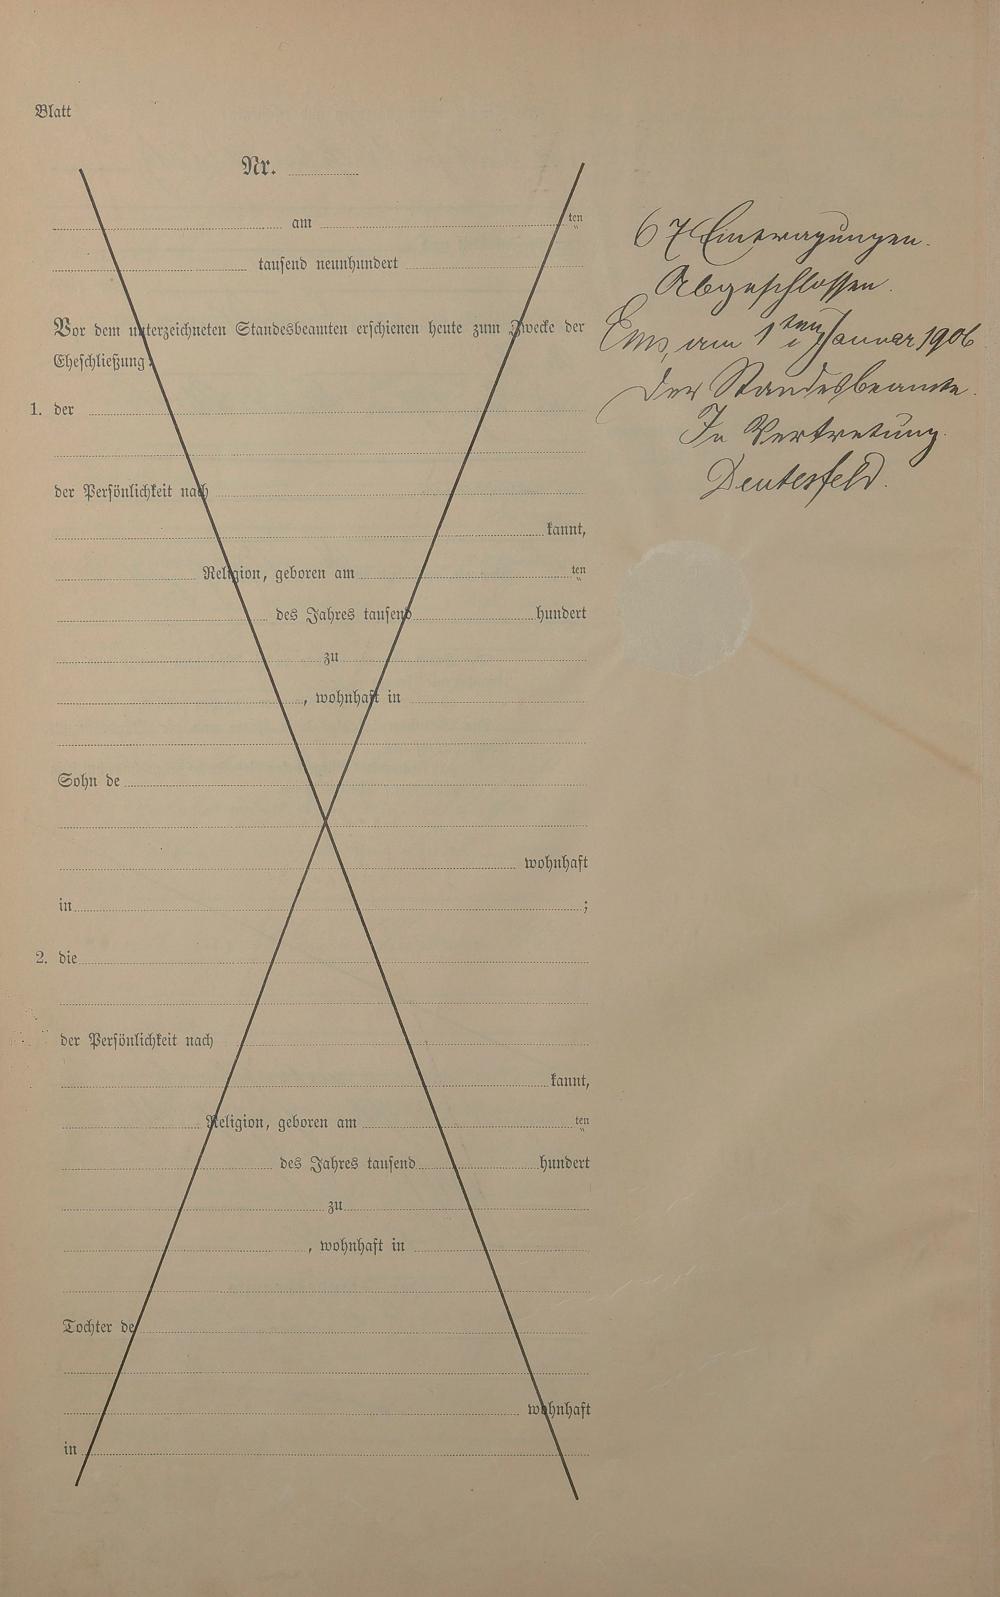 Blatt
Nr.
am ten
tausend neunhundert
Vor dem unterzeichneten Standesbeamten erschienen heute zum Zwecke der
Eheschließung:
1. der
der Persönlichkeit nach
kannt,
Religion, geboren am ten
des Jahres tausend hundert
zu
, wohnhaft in
Sohn de
wohnhaft
in ;
2. die
der Persönlichkeit nach
kannt,
Religion, geboren am ten
des Jahres tausend hundert
zu
, wohnhaft in
Tochter de
wohnhaft
in
67 Eintragungen.
Abgeschlossen.
Ems, am 1ten Januar 1906
Der Standesbeamte.
In Vertretung.
Deutesfeld.